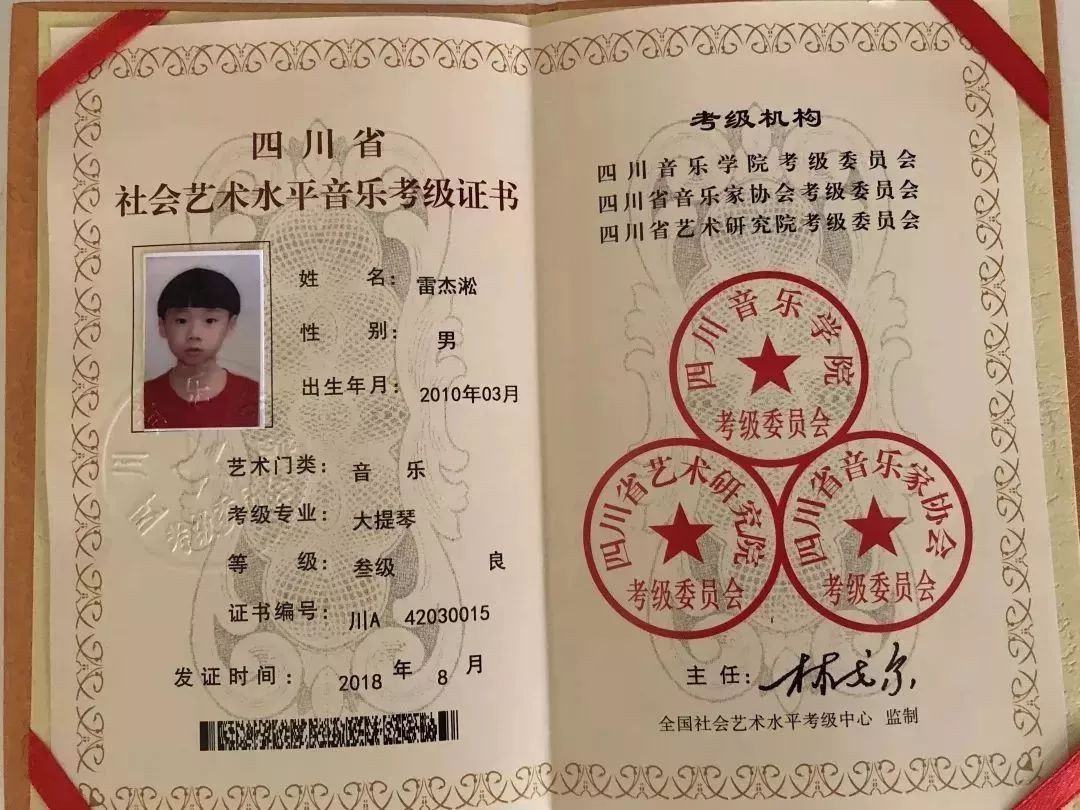 四川省
社会艺术水平音乐考级证书
姓 名: 雷杰淞
性 别: 男
出生年月: 2010年03月
艺术门类: 音 乐
考级专业: 大提琴
等 级: 叁级 良
证书编号: 川A 42030015
发证时间: 2018 年 8 月
考级机构
四川音乐学院考级委员会
四川省音乐家协会考级委员会
四川省艺术研究院考级委员会
四川音乐学院
考级委员会
四川省艺术研究院
考级委员会
四川省音乐家协会
考级委员会
主任: 林戈尔
全国社会艺术水平考级中心 监制